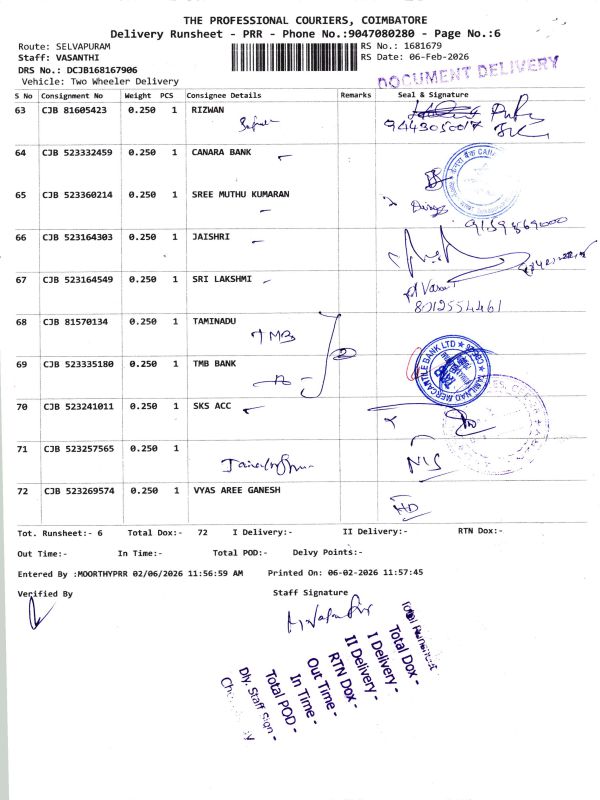 THE PROFESSIONAL COURIERS, COIMBATORE
Delivery Runsheet - PRR - Phone No.:9047080280 - Page No.:6
Route: SELVAPURAM
RS No.: 1681679
Staff: VASANTHI
RS Date: 06-Feb-2026
DRS No.: DCJB168167906
Vehicle: Two Wheeler Delivery
DOCUMENT DELIVERY
S No Consignment No Weight PCS Consignee Details Remarks Seal & Signature
63 CJB 81605423 0.250 1 RIZWAN
9443050017
64 CJB 523332459 0.250 1 CANARA BANK
65 CJB 523360214 0.250 1 SREE MUTHU KUMARAN
66 CJB 523164303 0.250 1 JAISHRI
67 CJB 523164549 0.250 1 SRI LAKSHMI
8012554461
68 CJB 81570134 0.250 1 TAMINADU
TMB
2
69 CJB 523335180 0.250 1 TMB BANK
TAMILNAD MERCANTILE BANK LTD
70 CJB 523241011 0.250 1 SKS ACC
71 CJB 523257565 0.250 1
72 CJB 523269574 0.250 1 VYAS AREE GANESH
HD
Tot. Runsheet:- 6 Total Dox:- 72 I Delivery:- II Delivery:- RTN Dox:-
Out Time:- In Time:- Total POD:- Delvy Points:-
Entered By :MOORTHYPRR 02/06/2026 11:56:59 AM Printed On: 06-02-2026 11:57:45
Verified By Staff Signature
Total Runsheet -
Total Dox -
I Delivery -
II Delivery -
RTN Dox -
Out Time -
In Time -
Total POD -
Dly. Staff Sign -